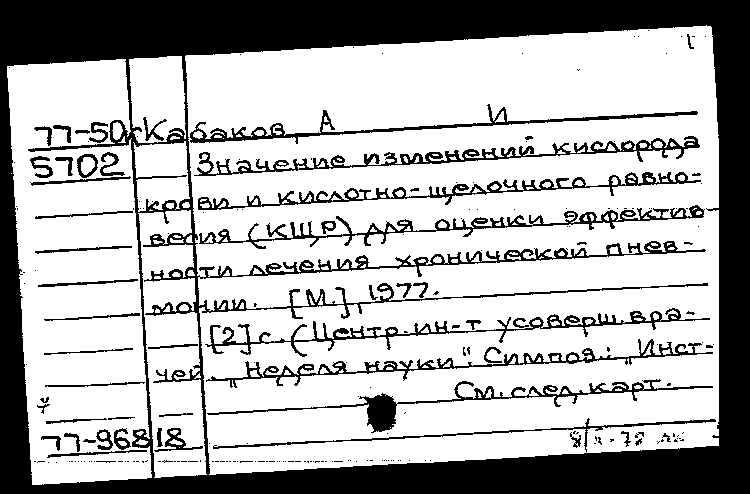 77-50к Кабаков, А И
5702 Значение изменений кислорода
крови и кислотно-щелочного равно-
весия (КЩР) для оценки эффектив
ности лечения хронической пнев-
монии. [М.], 1977.
[2] с. (Центр. ин-т усоверш. вра-
чей. „Неделя науки". Симпоз.: „Инст-
См. след. карт.
77-96818